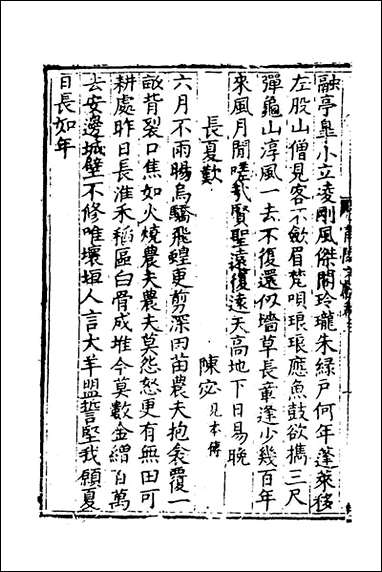 融亭臯小立凌剛風傑閣玲瓏朱綠戶何年蓬萊移
左股山僧見客不歛眉梵唄琅琅應魚鼓欲攜三尺
彈龜山淳風一去不復還似墻草長章逢少幾百年
來風月閒嗟哉賢聖遠復遠天高地下日易晚
長夏歎
陳宓見本傳
六月不雨暘烏驕飛蝗更剪深田苗農夫抱衾覆一
畝背裂口焦如火燒農夫農夫莫怨怒更有無田可
耕處昨日長淮禾稻區白骨成堆今莫數金繒百萬
去安邊城壁不修唯壞垣人言犬羊盟誓堅我願夏
日長如年